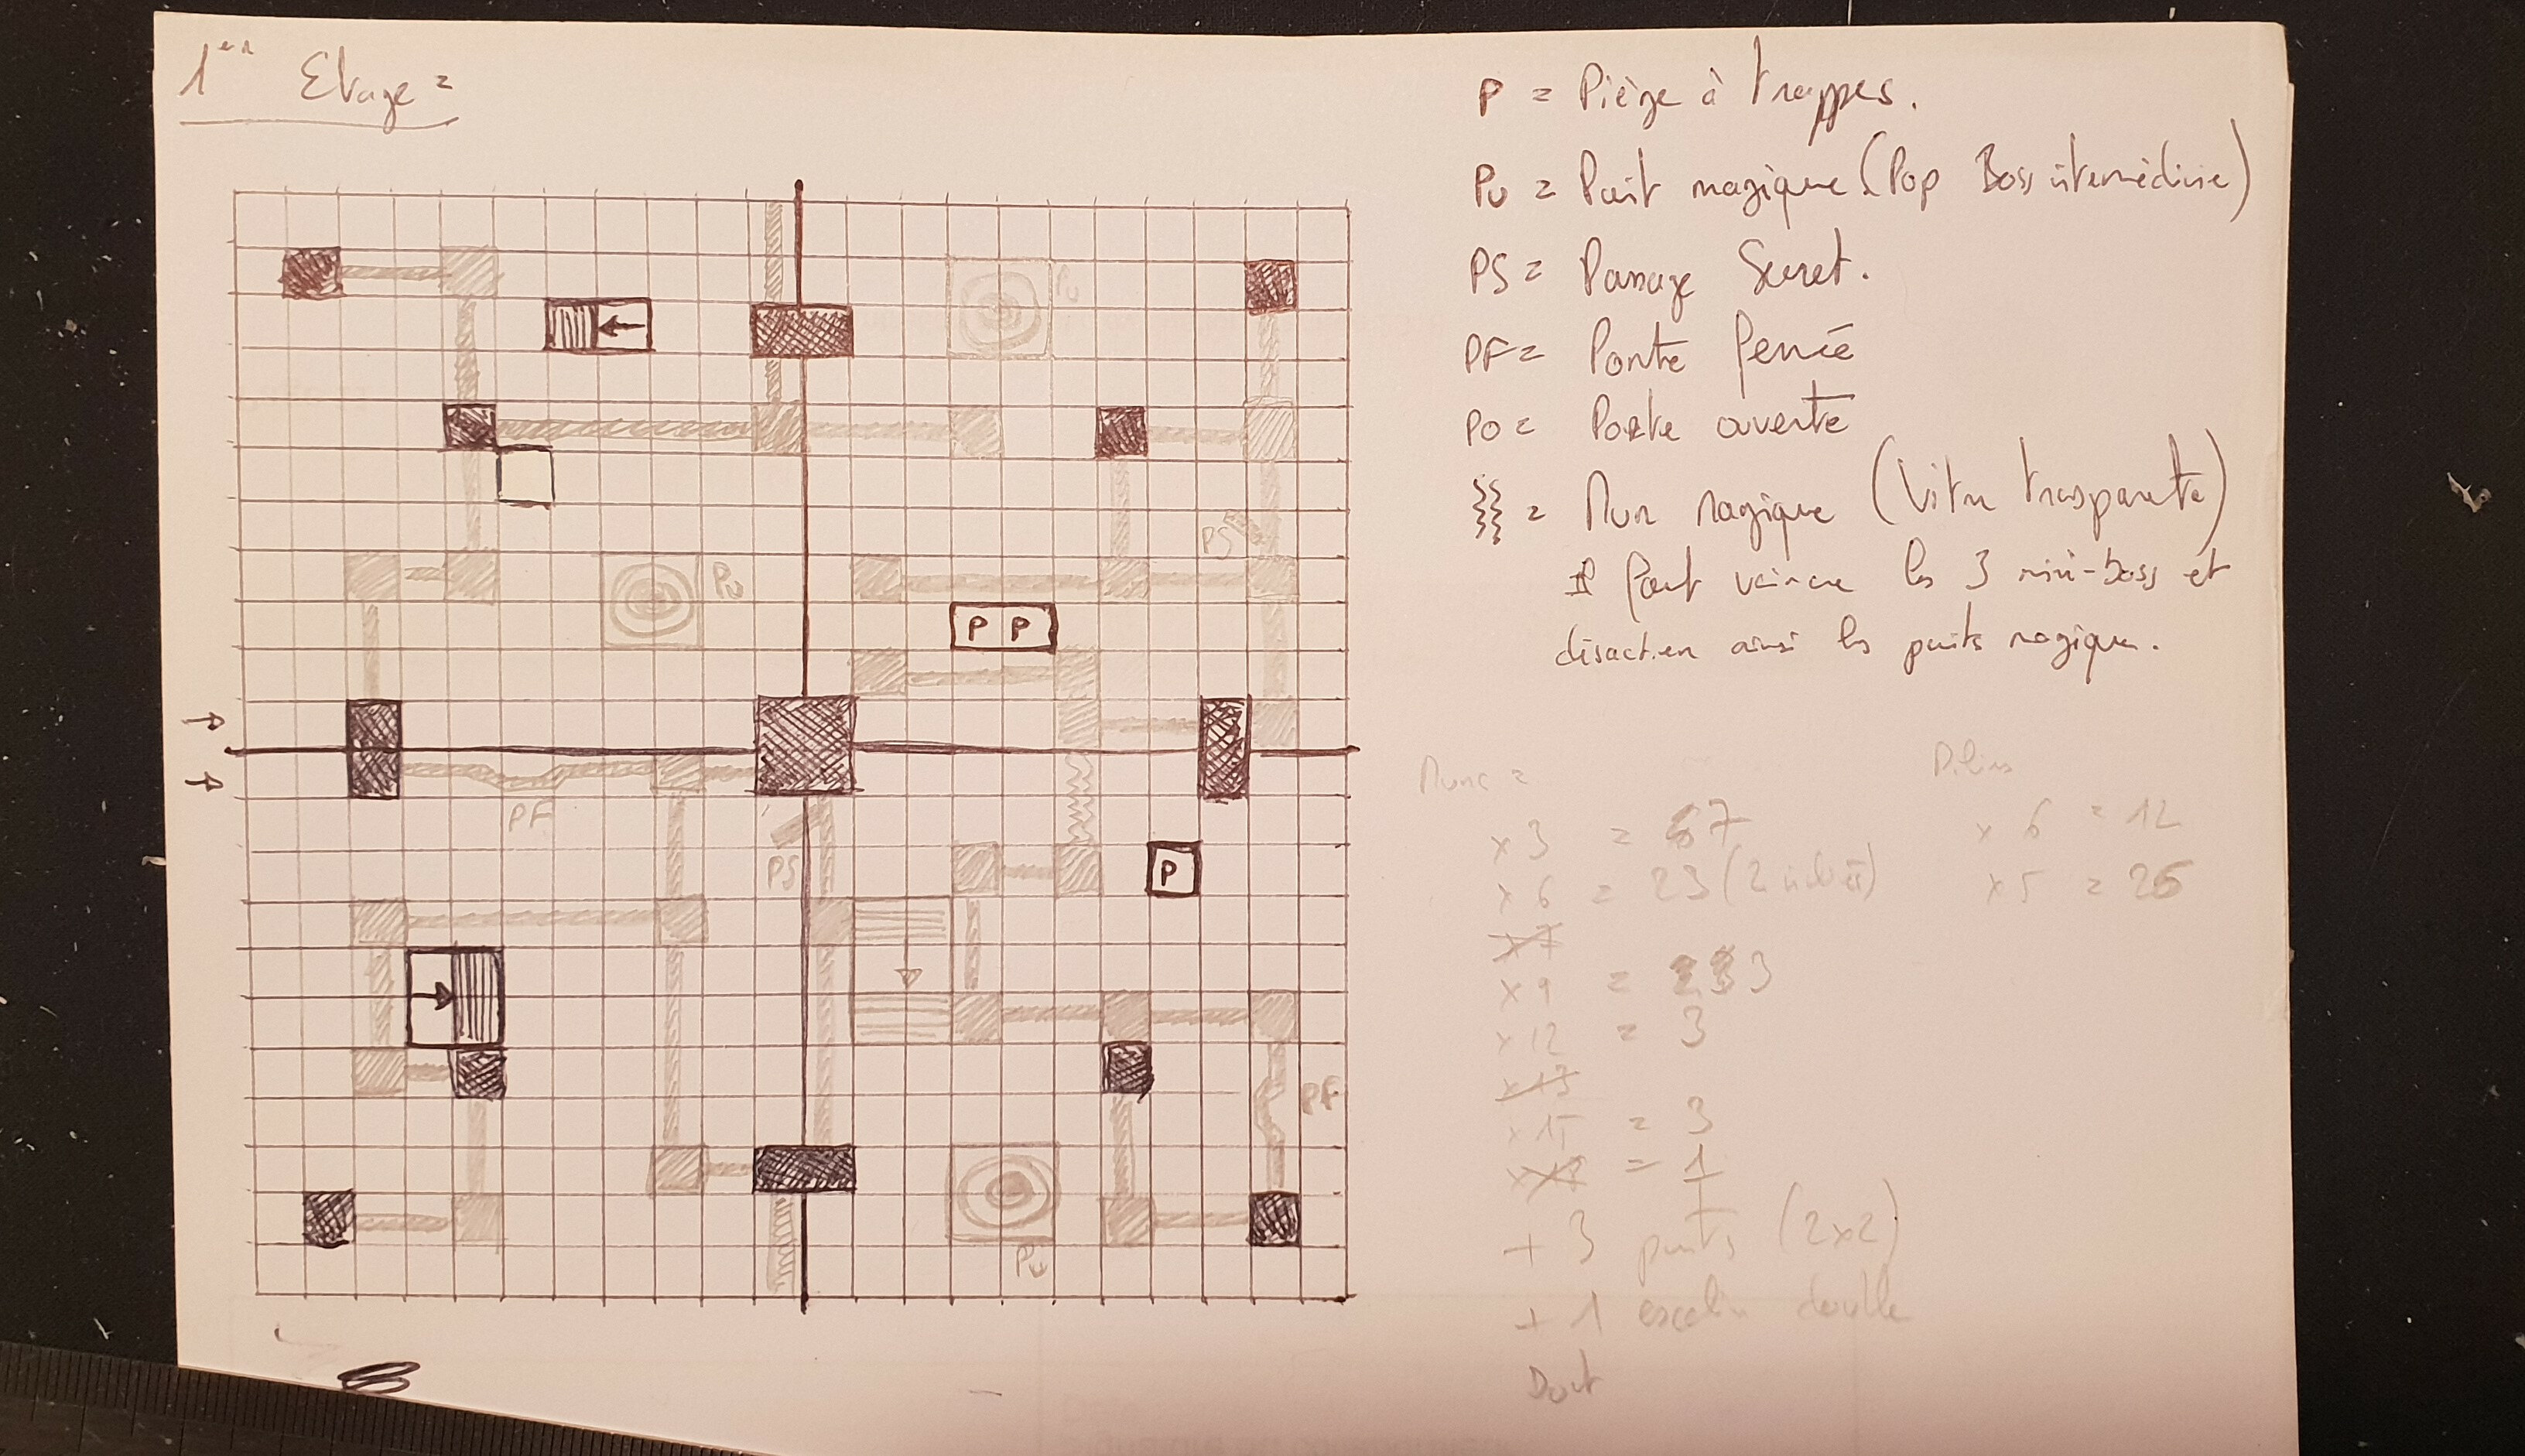 1er Etage =
P = Piège à trappes.
Pu = Puit magique (Pop Boss intermédiaire)
PS = Passage Secret.
PF = Porte fermée
PO = Porte ouverte
= Mur Magique (Vitre transparente)
Il faut vaincre les 3 mini-boss et
désactiver ainsi les puits magique.
Pu
PS
Pu
P P
PF
PS
P
PF
Pu
Murs =
Piliers
x 3 = 67
x 6 = 12
x 6 = 23 (2
x 5 = 26
x 7
x 9 = 3
x 12 = 3
x 13
x 15 = 3
= 1
+ 3 puits (2x2)
+ 1 escalier double